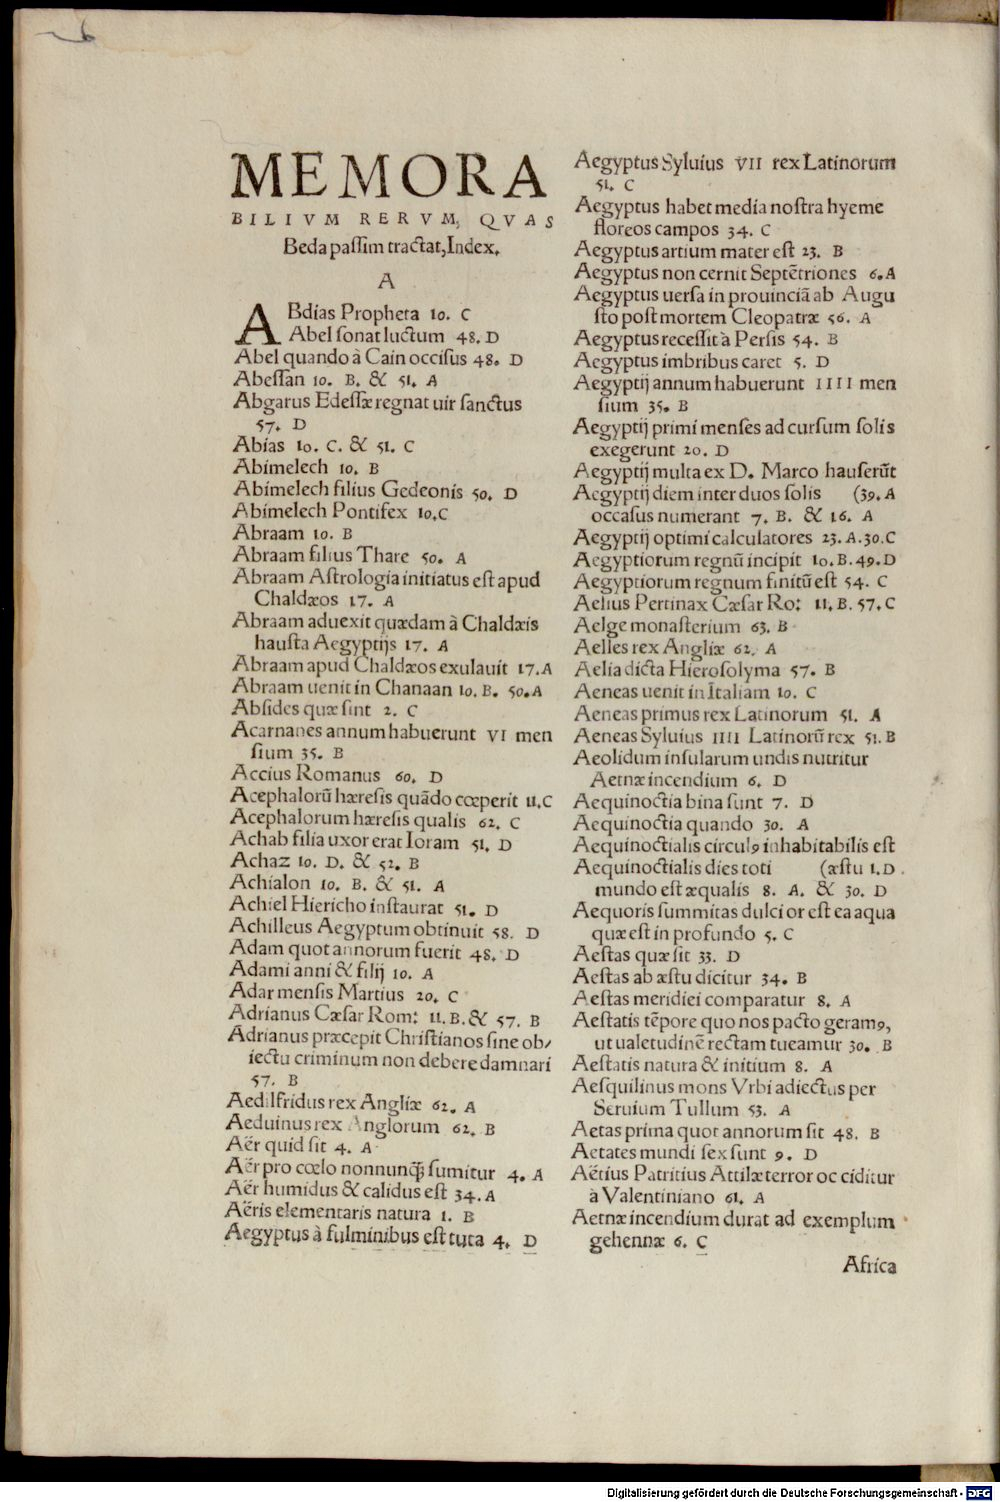 MEMORA
BILIVM RERVM, QVAS
Beda paſſim tractat, Index.
A
ABdías Propheta 10. C
Abel ſonat luctum 48. D
Abel quando à Cain occiſus 48. D
Abeſſan 10. B. & 51. A
Abgarus Edeſſæ regnat uir ſanctus
57. D
Abías 10. C. & 51. C
Abímelech 10. B
Abímelech filíus Gedeonís 50. D
Abímelech Pontifex 10. C
Abraam 10. B
Abraam filius Thare 50. A
Abraam Aſtrología ínitíatus eſt apud
Chaldæos 17. A
Abraam aduexit quædam à Chaldæis
hauſta Aegyptijs 17. A
Abraam apud Chaldæos exulauit 17. A
Abraam uenit in Chanaan 10. B. 50. A
Abſides quæ ſint 2. C
Acarnanes annum habuerunt VI men
ſium 35. B
Accius Romanus 60. D
Acephalorũ hæreſis quãdo cœperit 11. C
Acephalorum hæreſis qualis 62. C
Achab filia uxor erat Ioram 51. D
Achaz 10. D. & 52. B
Achialon 10. B. & 51. A
Achiel Hiericho inſtaurat 51. D
Achilleus Aegyptum obtinuit 58. D
Adam quot annorum fuerit 48. D
Adami anni & filij 10. A
Adar menſis Martius 20. C
Adrianus Cæſar Rom: 11. B. & 57. B
Adrianus præcepit Chriſtianos ſine ob/
iectu criminum non debere damnari
57. B
Aedilfridus rex Angliæ 62. A
Aeduinus rex Anglorum 62. B
Aër quid ſit 4. A
Aër pro cœlo nonnunq̃; ſumitur 4. A
Aër humidus & calidus eſt 34. A
Aëris elementaris natura 1. B
Aegyptus à fulminibus eſt tuta 4. D
Aegyptus Syluíus VII rex Latinorum
51. C
Aegyptus habet media noſtra hyeme
floreos campos 34. C
Aegyptus artium mater eſt 23. B
Aegyptus non cernit Septẽtriones 6. A
Aegyptus uerſa in prouinciã ab Augu
ſto poſt mortem Cleopatræ 56. A
Aegyptus receſſit à Perſis 54. B
Aegyptus imbribus caret 5. D
Aegyptij annum habuerunt IIII men
ſium 35. B
Aegyptij primi menſes ad curſum ſolis
exegerunt 20. D
Aegyptij multa ex D. Marco hauſerũt
Aegyptij diem inter duos ſolis (39. A
occaſus numerant 7. B. & 16. A
Aegyptij optimi calculatores 23. A. 30. C
Aegyptiorum regnũ incipit 10. B. 49. D
Aegyptiorum regnum finitũ eſt 54. C
Aelius Pertinax Cæſar Ro: 11. B. 57. C
Aelge monaſterium 63. B
Aelles rex Angliæ 62. A
Aelia dicta Hieroſolyma 57. B
Aeneas uenit in Italiam 10. C
Aeneas primus rex Latinorum 51. A
Aeneas Syluius IIII Latinorũ rex 51. B
Aeolidum inſularum undis nutritur
Aetnæ incendium 6. D
Aequinoctia bina ſunt 7. D
Aequinoctia quando 30. A
Aequinoctialis circulꝰ inhabitabilis eſt
Aequinoctialis dies toti (æſtu 1. D
mundo eſt æqualis 8. A. & 30. D
Aequoris ſummitas dulcior eſt ea aqua
quæ eſt in profundo 5. C
Aeſtas quæ ſit 33. D
Aeſtas ab æſtu dicitur 34. B
Aeſtas meridiei comparatur 8. A
Aeſtatis tẽpore quo nos pacto geramꝰ,
ut ualetudinẽ rectam tueamur 30. B
Aeſtatis natura & initium 8. A
Aeſquilinus mons Vrbi adiectus per
Seruium Tullum 53. A
Aetas prima quot annorum ſit 48. B
Aetates mundi ſex ſunt 9. D
Aëtius Patritius Attilæ terror occiditur
à Valentiniano 61. A
Aetnæ incendium durat ad exemplum
gehennæ 6. C
Africa
Digitalisierung gefördert durch die Deutsche Forschungsgemeinschaft - DFG